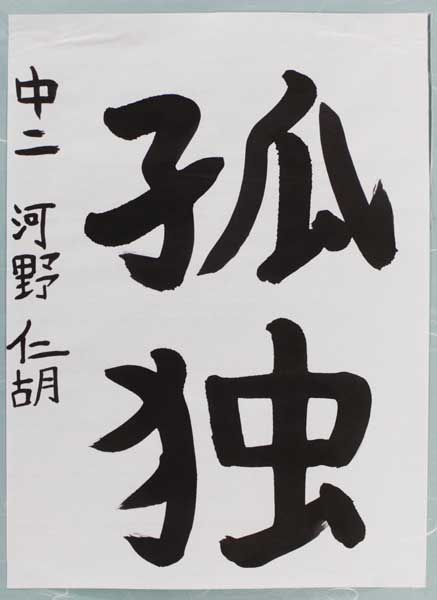 孤独
中二 河野 仁胡